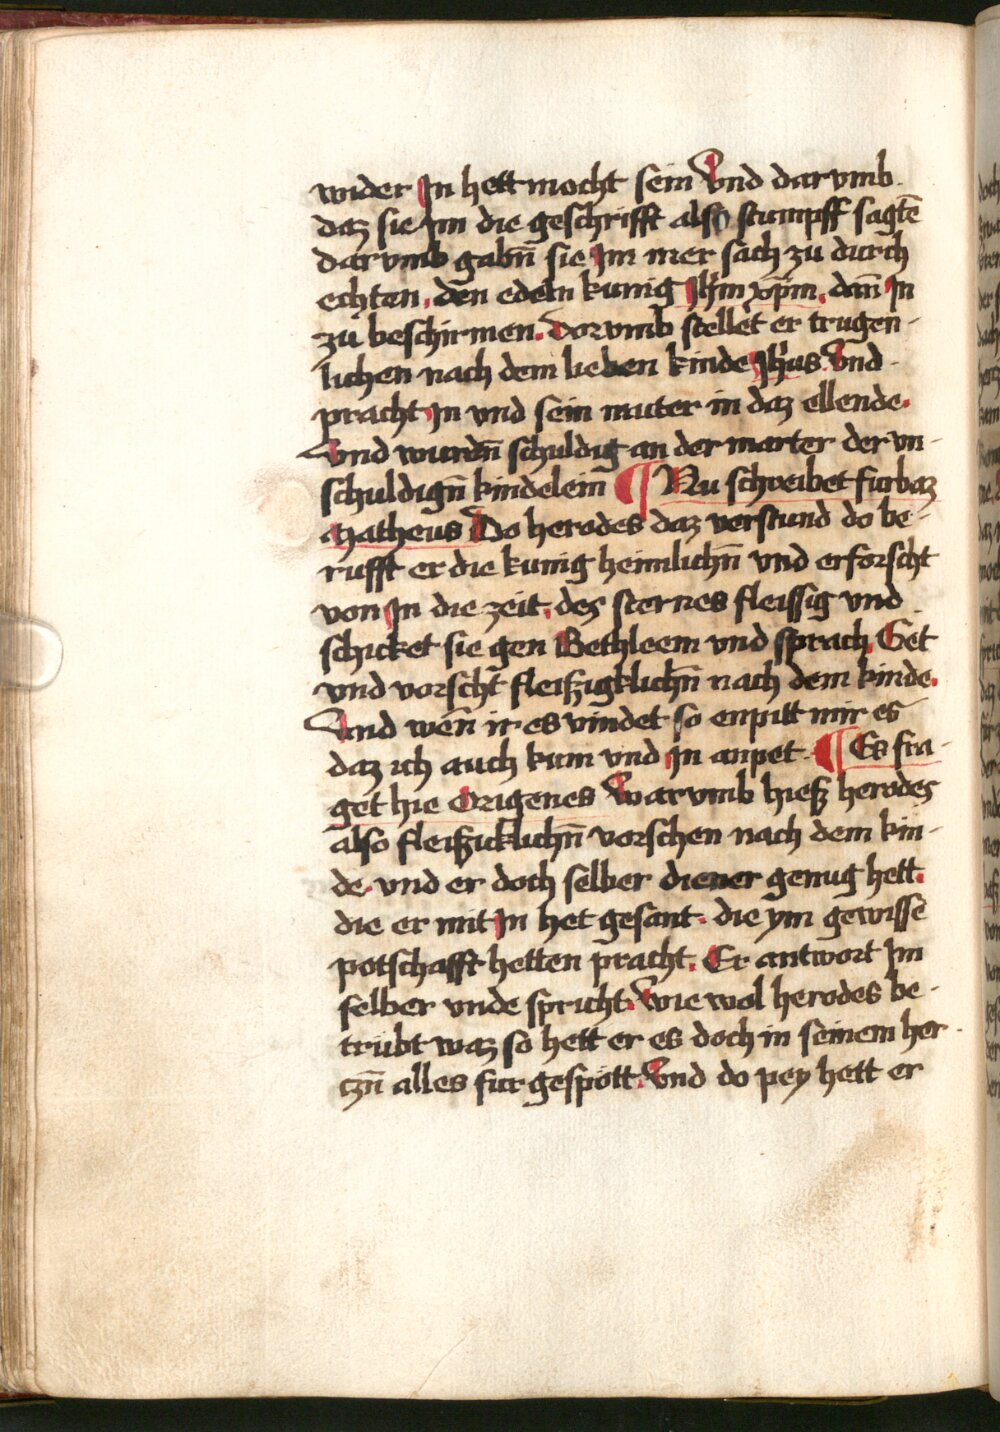 wider In hett mocht sein Vnd dar vmb
daz sie im die geschrifft also stumpff sagtē
dar vmb gabn̄ sie Im mer sach zu durch
echten . den edeln kunig Jhm xp̄m . dan̄ In
zu beschirmen . Dor vmb stellet er trugen-
lichen nach dem lieben kinde Jhus . Vnd
pracht In vnd sein muter in daz ellende .
Vnd wurdn̄ schuldig an der marter der vn-
schuldign̄ kindelein ¶ Nu schreibet furbaz
Matheus Do herodes daz verstund do be-
rufft er die kunig heimlichn̄ vnd erforscht
von In die zeit . des sternes fleissig vnd
schicket sie gen Bethleem vnd sprach Get
vnd vorscht fleiszigklichn̄ nach dem kinde .
Vnd wen̄ ir es vindet so enpitt mir es
daz ich auch kum vnd In anpet . ¶ Es fra-
get hie Origenes Warvmb hiesz herodes
also fleiszicklichn̄ vorschen nach dem kin-
de vnd er doch selber diener genug hett .
die er mit In het gesant . die ym gewisse
potschafft hetten pracht . Er antwort Im
selber vnde spricht . Wie wol herodes be-
trubt waz so hett er es doch in seinem her-
czn̄ alles fur gespött . Vnd do pey hett er